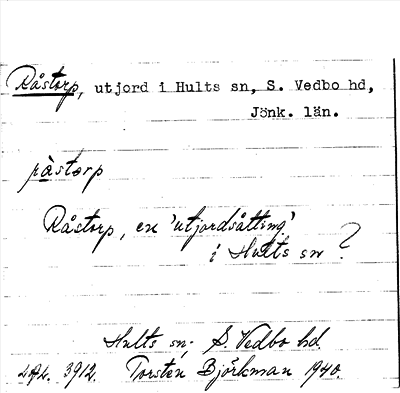 Råstorp, utjord i Hults sn, S. Vedbo hd,
Jönk. län.
råstorp
Råstorp, en 'utjordsåtting'
i Hults sn ?
Hults sn. S. Vedbo hd.
3912. Torsten Björkman 1940.